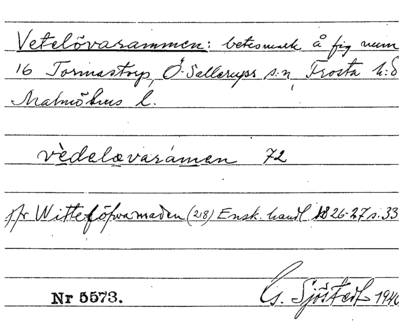 Vetelövarammen: betesmark å fig num
16 Tormastorp, Ö. Sallerups s:n, Frosta h:d
Malmöhus l.
vèdeløvarámen 72
Jfr Wittelöfvamaden (218) Ensk. handl 1826-27 s. 33
Nr 5573.
G. Sjöstedt 1940